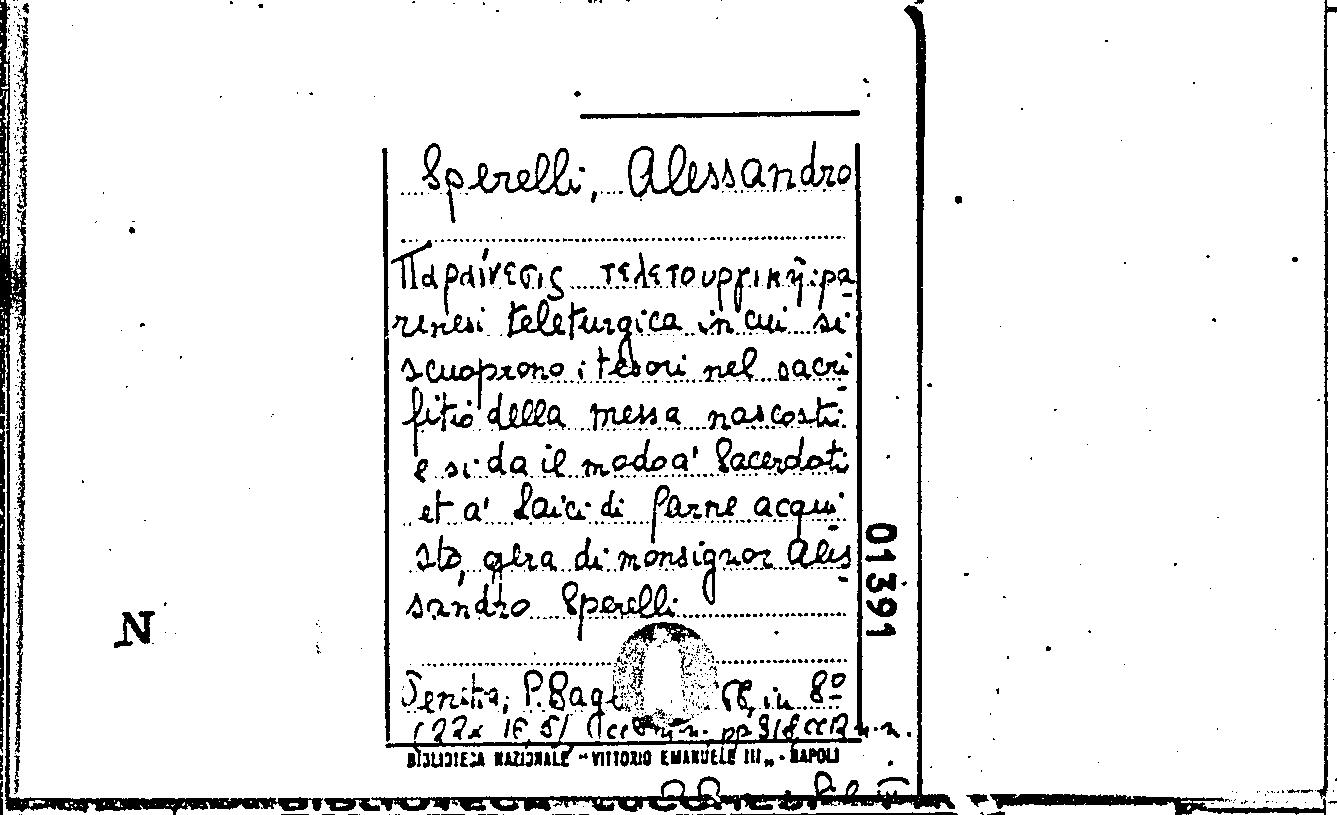 Sperelli, Alessandro
Παραίνεσις τελετουργική: pa
renesi teleturgica in cui si
scuoprono i tesori nel sacri
fitio della messa nascosti
e si da il modo a' Sacerdoti
et a' Laici di farne acqui
sto, opera di monsignor Ales
sandro Sperelli
01391
N
in 8º
(22x16,5) pp. 918, n.n.
BIBLIOTECA NAZIONALE "VITTORIO EMANUELE III" - NAPOLI
BIBLIOTECA LUCCHESI